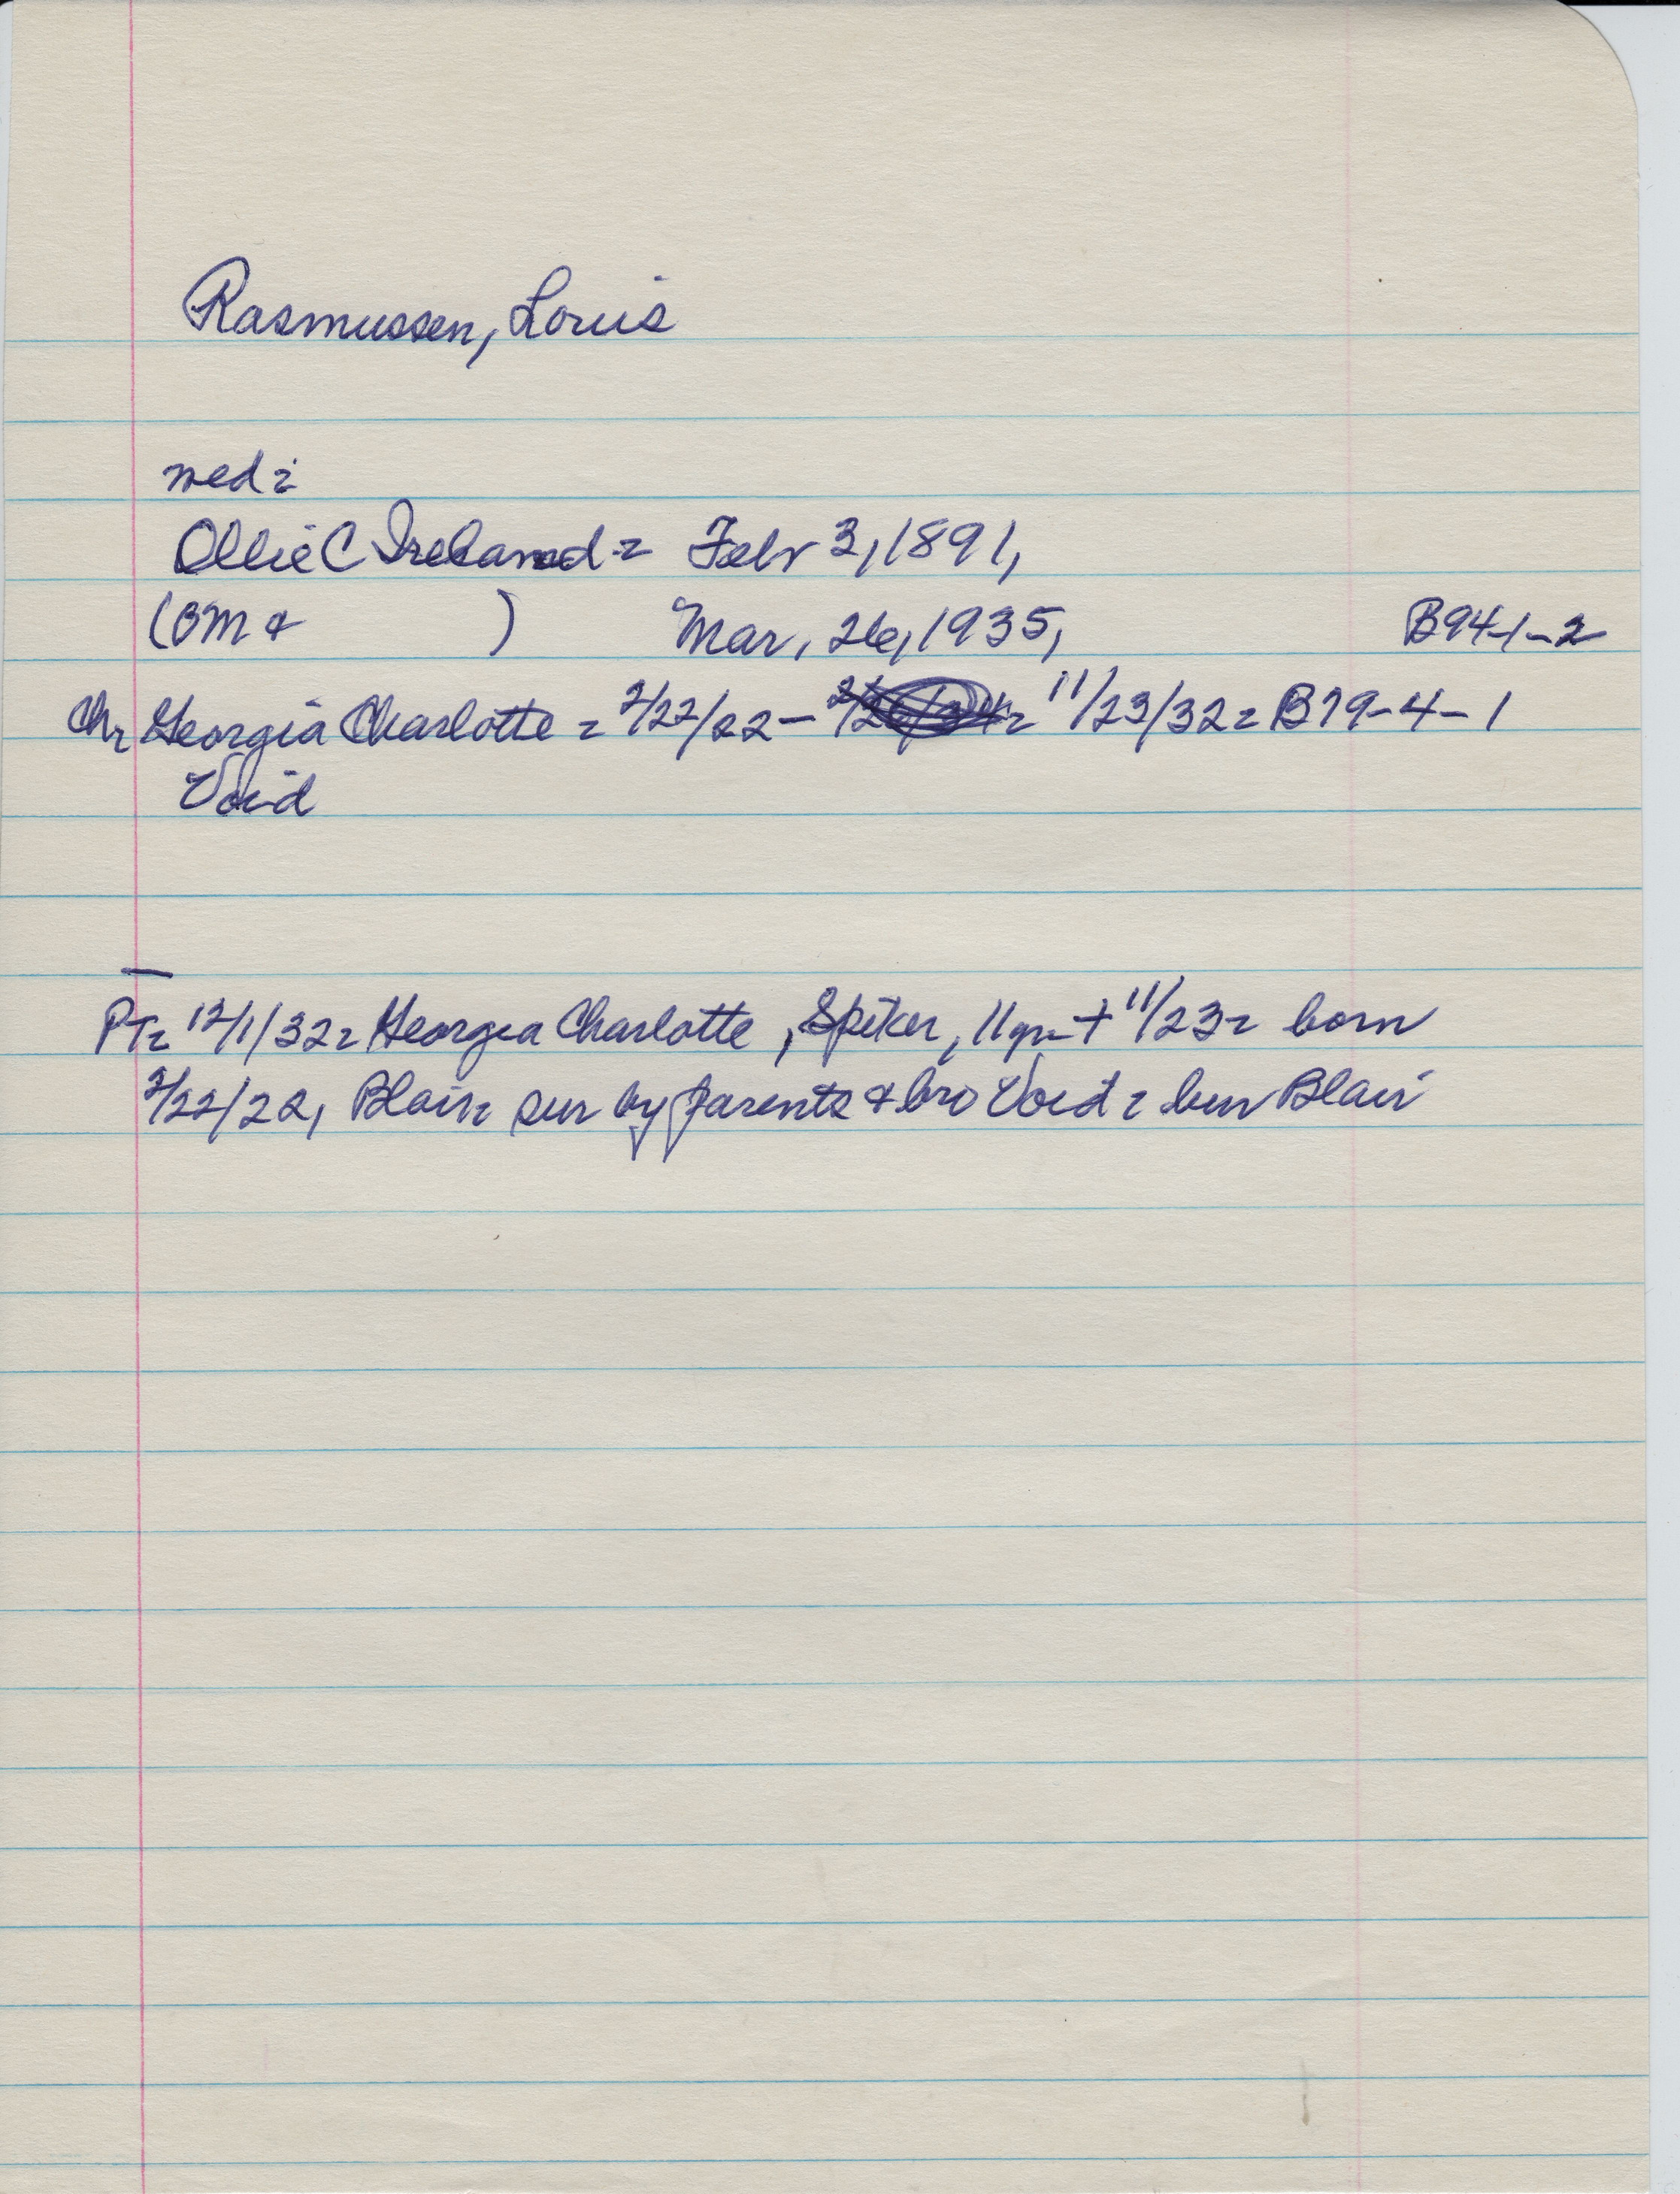 Rasmussen, Louis
wed:
Ollie C Ireland = Febr 3, 1891,
(OM & ) Mar, 26, 1935, B94-1-2
Ch, Georgia Charlotte = 2/22/22 - 11/23/32 = B79-4-1
Void
PT= 12/1/32 = Georgia Charlotte, Spiker, 11 yr + 11/23 = born
2/22/22, Blair = sur by parents & bro Void = bur Blair